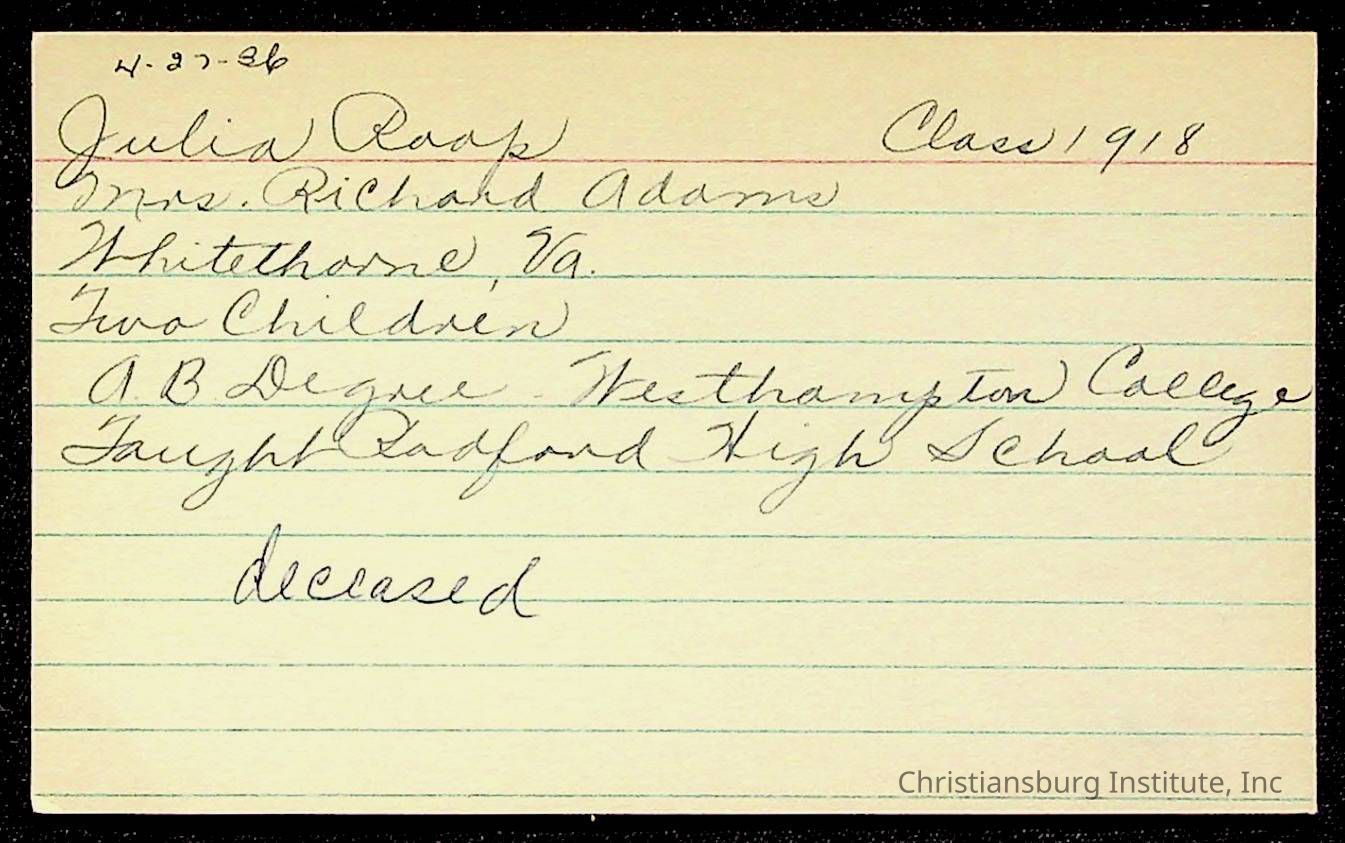 4-27-36
Julia Roop Class 1918
Mrs. Richard Adams
Whitethorne, Va.
Two Children
A.B. Degree - Westhampton College
Taught Radford High School
deceased
Christiansburg Institute, Inc